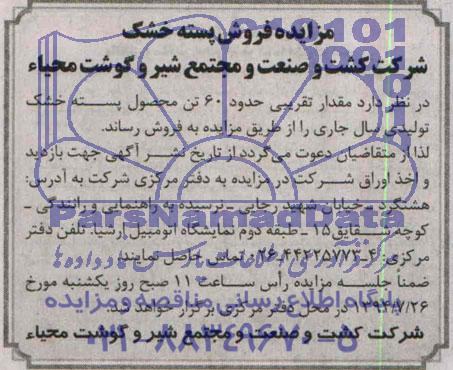 مزایده فروش پسته خشک
شرکت کشت و صنعت و مجتمع شیر و گوشت محیاء
در نظر دارد مقدار تقریبی حدود ۶۰ تن محصول پسته خشک
تولیدی سال جاری را از طریق مزایده به فروش رساند.
لذا از متقاضیان دعوت می‌گردد از تاریخ نشر آگهی جهت بازدید
و اخذ اوراق شرکت در مزایده به دفتر مرکزی شرکت به آدرس:
هشتگرد ـ خیابان شهید رجایی ـ نرسیده به راهنمایی و رانندگی ـ
کوچه شقایق ۱۵ ـ طبقه دوم نمایشگاه اتومبیل ارشیا. تلفن دفتر
مرکزی: ۴ـ۰۲۶-۴۴۲۲۵۷۷۳ تماس حاصل نمایند.
ضمناً جلسه مزایده رأس ساعت ۱۱ صبح روز یکشنبه مورخ
۱۳۹۴/۷/۲۶ در محل دفتر مرکزی برگزار خواهد شد.
شرکت کشت و صنعت و مجتمع شیر و گوشت محیاء
ParsNamadData
پایگاه اطلاع رسانی مناقصه و مزایده